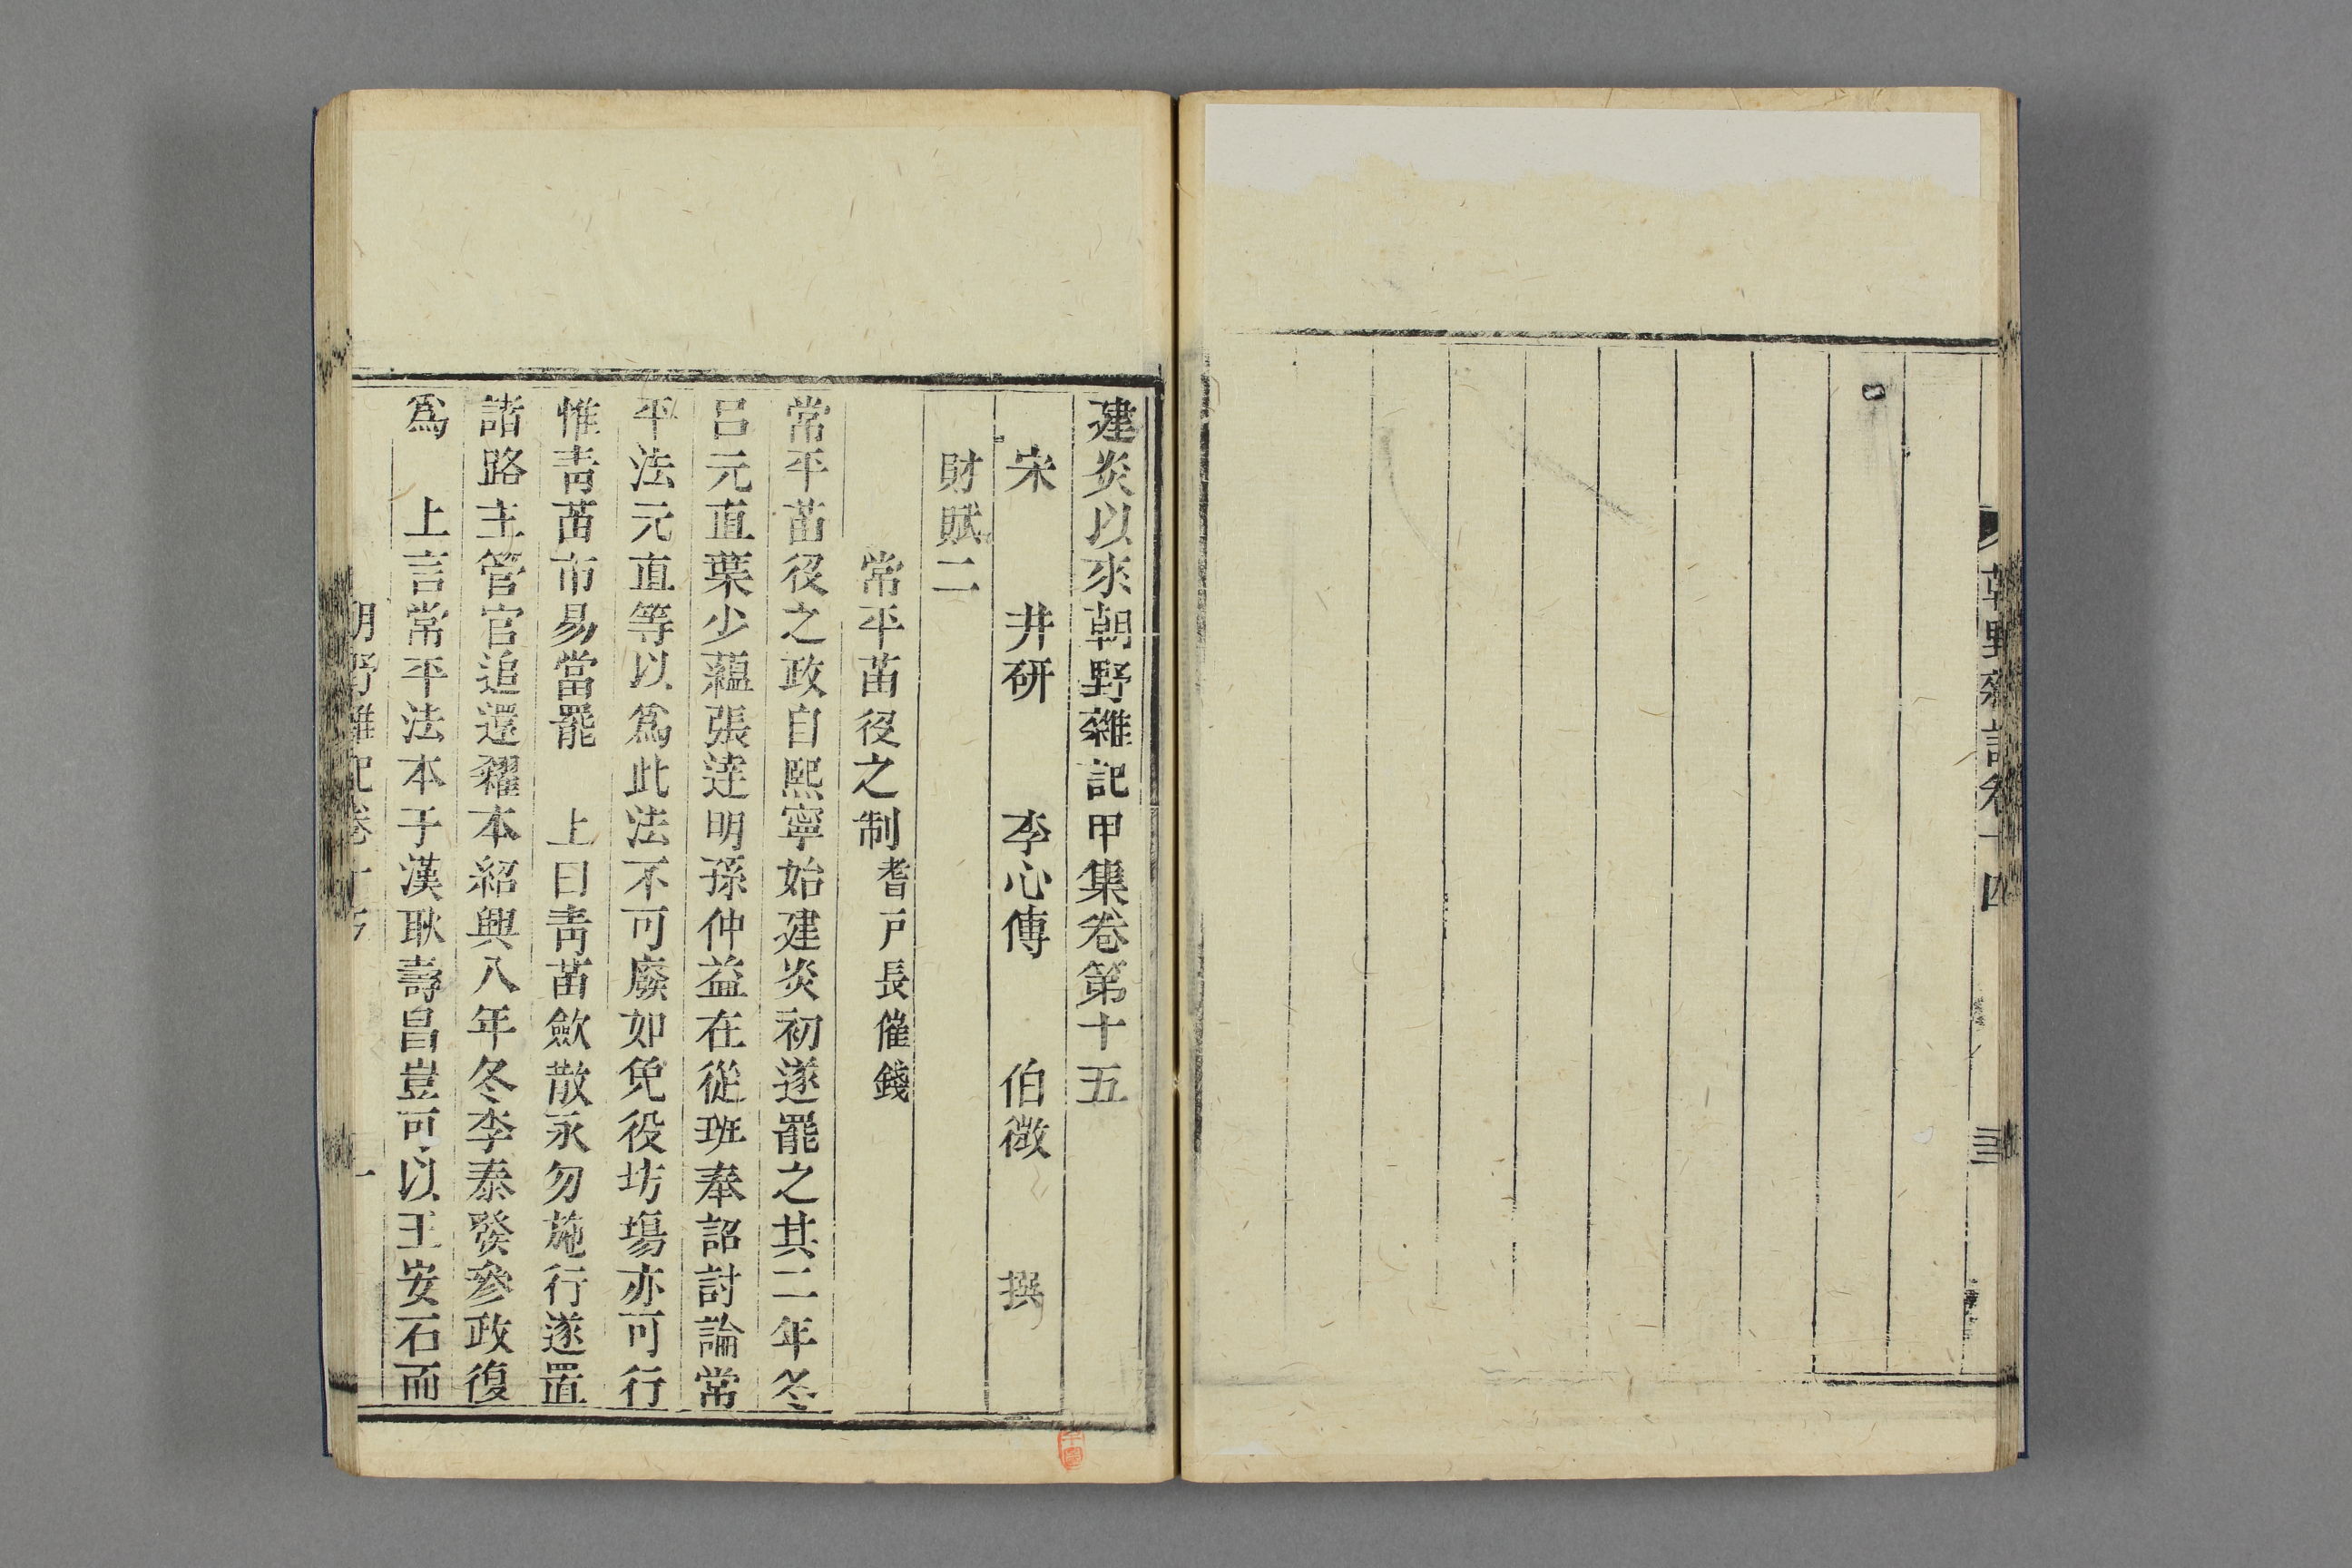 朝野雜記卷十四
三
建炎以來朝野雜記甲集卷第十五
宋 井研 李心傳 伯徵 撰
財賦二
常平苗役之制 耆戸長催錢
常平苗役之政自熙寧始建炎初遂罷之其二年冬
呂元直葉少蘊張逹明孫仲益在從班奉詔討論常
平法元直等以爲此法不可廢如免役坊場亦可行
惟青苗市易當罷 上曰青苗歛散永勿施行遂置
諸路主管官追還糴本紹興八年冬李泰發參政復
爲 上言常平法本于漢耿壽昌豈可以王安石而
朝野雜記卷十五
一